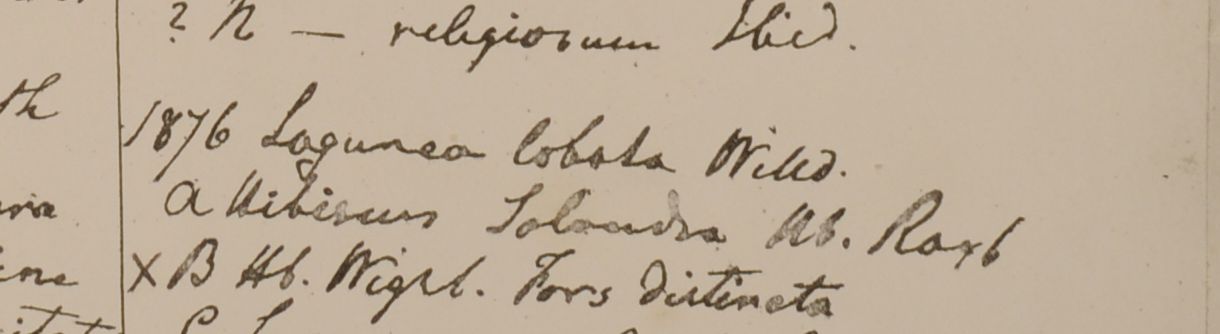 ? N — religiosum Ibid.
th
1876 Lagunea lobata Willd.
a Hibiscus Solandra Hb. Roxb
X B Hb. Wight. Fors distincta